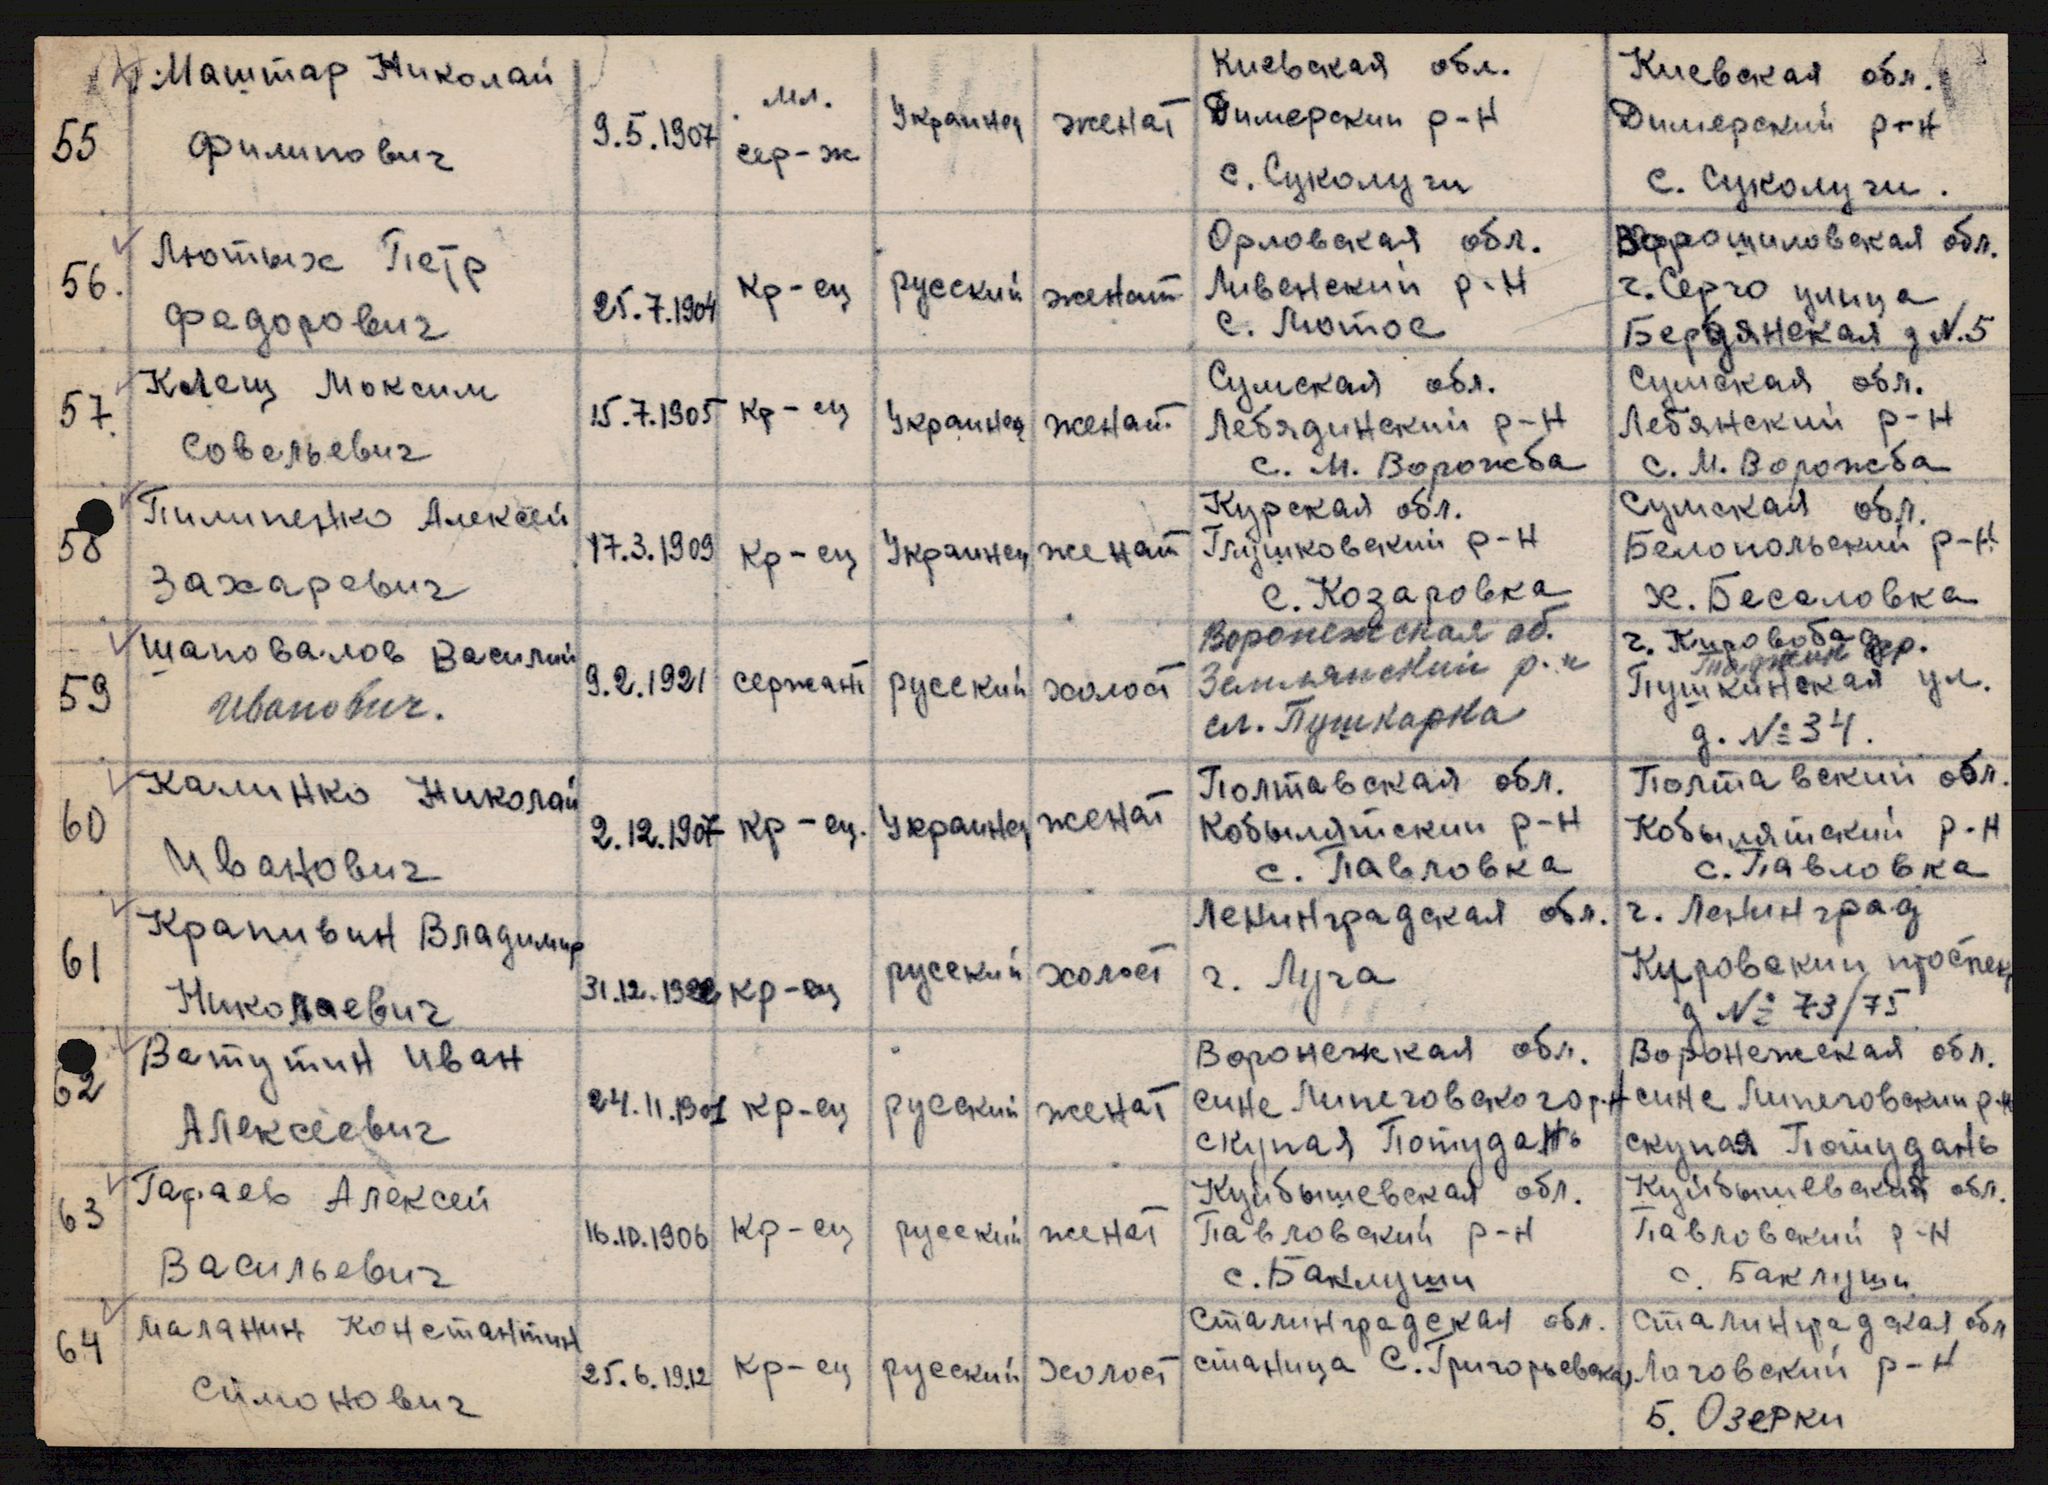 55 Маштар Николай
Филипович
9.5.1907
мл.
сер-ж
Украинец
женат
Киевская обл.
Димерский р-н
с. Суколучи
Киевская обл.
Димерский р-н
с. Суколучи.
56. Лютых Петр
Федорович
25.7.1904
Кр-ец
русский
женат
Орловская обл.
Ливенский р-н
с. Лютое
Ворошиловская обл.
г. Серго улица
Бердянская д N.5
57. Клещ Моксим
Совельевич
15.7.1905
Кр-ец
Украинец
женат
Сумская обл.
Лебядинский р-н
с. М. Ворожба
Сумская обл.
Лебянский р-н
с. М. Ворожба
58 Пилипенко Алексей
Захаревич
17.3.1909
Кр-ец
Украинец
женат
Курская обл.
Глушковский р-н
с. Козаровка
Сумская обл.
Белопольский р-н
х. Беселовка
59 Шаповалов Василий
Иванович.
9.2.1921
сержант
русский
холост
Воронежская об.
Землянский р-н
сл. Пушкарка
г. Кировобад
Пушкинская ул.
д. №34.
60 Калинко Николай
Иванович
2.12.1907
Кр-ец.
Украинец
женат
Полтавская обл.
Кобылятский р-н
с. Павловка
Полтавский обл.
Кобылятский р-н
с. Павловка
61 Крапивин Владимир
Николаевич
31.12.1922
Кр-ец
русский
холост
Ленинградская обл.
г. Луга
г. Ленинград
Кировский проспек
д № 73/75
62 Ватутин Иван
Алексеевич
24.11.1901
Кр-ец
русский
женат
Воронежкая обл.
сине Липеговского р-н
скупая Потудань
Воронежская обл.
сине Липеговский р-н
скупая Потудань
63 Гараев Алексей
Васильевич
16.10.1906
Кр-ец
русский
женат
Куйбышевская обл.
Павловский р-н
с. Баклуши
Куйбышевский обл.
Павловский р-н
с. Баклуши
64 Маланин Константин
Симонович
25.6.1912
Кр-ец
русский
Холост
Сталинградская обл.
станица С. Григорьевская
Сталинградская обл
Логовский р-н
Б. Озерки